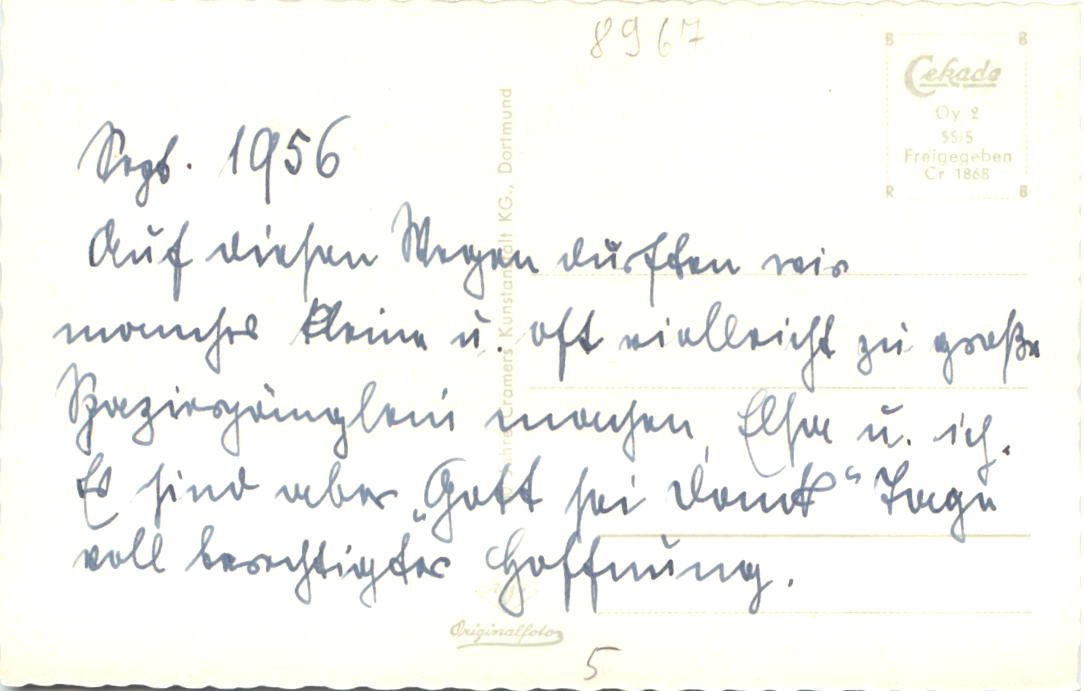 8967
B B
Cekade
Oy 2
55/5
Freigegeben
Cr 1868
R B
Cramers Kunstanstalt KG., Dortmund
Sept. 1956
Auf diesen Wegen durften wir
manches kleine u. oft vielleicht zu große
Spaziergänglein machen, Elsa u. ich.
Es sind aber „Gott sei Dank“ Tage
voll berechtigter Hoffnung.
Originalfoto
5